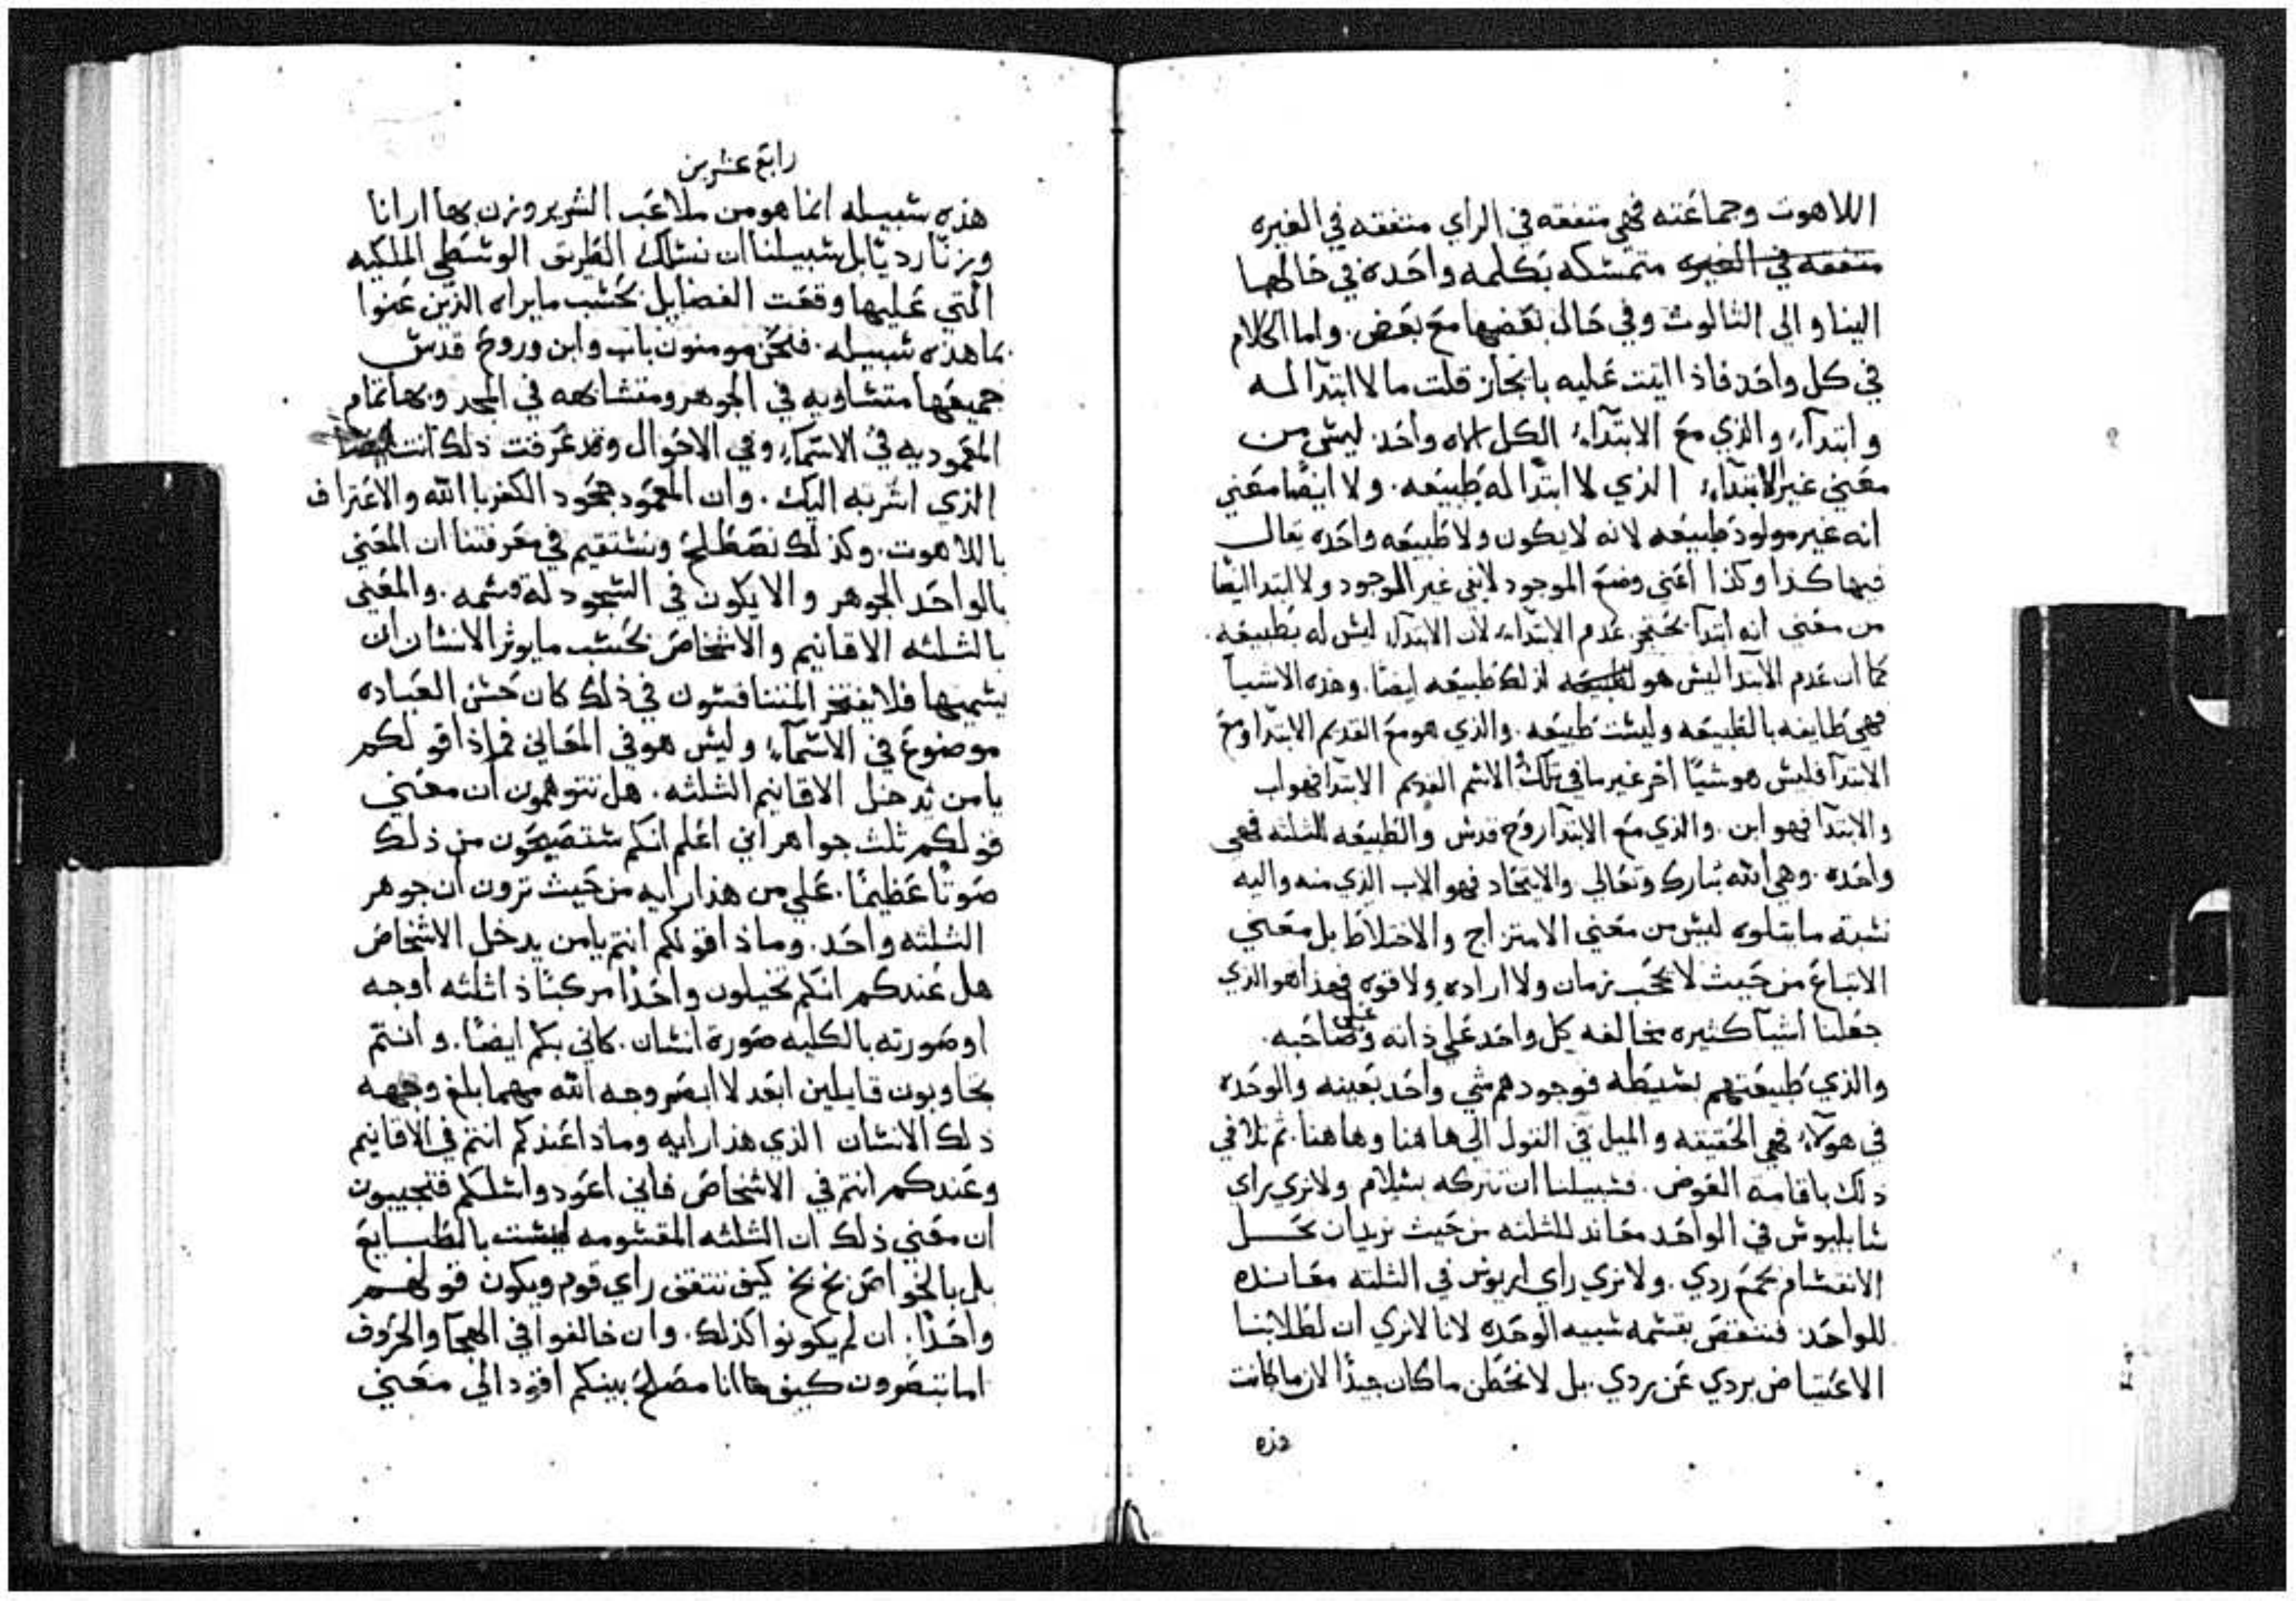 اللاهوت وجماعته فهي متفقه في الراي متفقه في الغيره
متفقه في الغيره متمسكه بكلمه واحده في حالها
الينا والى الثالوث وفي حال بعضها مع بعض. واما الكلام
في كل واحد فاذا اتيت عليه بايجاز قلت ما لا ابتدا له
وابتداء والذي مع الابتداء الكل اله واحد ليس من
معنى غير الابتداء الذي لا ابتدا له طبيعه. ولا ايضا معنى
انه غير مولود طبيعه لانه لا يكون ولا طبيعه واحده يقال
فيها كذا وكذا اعني وضع الموجود لا نفي غير الموجود ولا ابتدا ايضا
من معنى انه ابتدا عدم الابتداء لان الابتدا ليس له بطبيعه.
كما ان عدم الابتدا ليس هو لذلك طبيعه ايضا. وهذه الاشيا
فهي طايفه بالطبيعه وليست طبيعه. والذي هو مع القديم الابتدا ومع
الابتدا فليس هو شيا اخر غير ما في تلك الاسم القديم الابتدا فهو اب
والابتدا فهو ابن. والذي مع الابتدا روح قدس والطبيعه للثلثه فهي
واحده. وهي الله تبارك وتعالى والاتحاد فهو الاب الذي منه واليه
نسبة ما يتلوه ليس من معنى الامتزاج والاختلاط بل معنى
الاتباع من حيث لا يحجب زمان ولا اراده ولا قوه فهذا هو الذي
جعلنا اشيا كثيره مخالفه كل واحد على ذاته وعلى صاحبه.
والذي طبيعتهم بسيطه فوجودهم شي واحد بعينه والوحده
في هولاء فهي الحقيقه والميل في القول الى هاهنا وهاهنا. ثم تلافي
ذلك باقامة العوض. فسبيلنا ان نتركه بسلام ولا نرى راي
سابليوس في الواحد معاند للثلثه من حيث نريد ان نحل
الانقسام بجمع ردي. ولا نرى راي اريوس في الثلثه معانده
للواحد. فننقض بقسمه شبيه الوحده لانا لا نرى ان لطلابنا
الاعتياض بردي عن ردي. بل لا نخطى ما كان جيدا لان ما كانت
هذه
رابع عشرين
هذه سبيله انما هو من ملاعب الشرير ونزن بها ارانا
وزنا رديا بل سبيلنا ان نسلك الطريق الوسطى الملكيه
التي عليها وقفت الفضايل بحسب ما يراه الذين عنوا
بما هذه سبيله. فنحن مومنون باب وابن وروح قدس
جميعها متساويه في الجوهر ومتشابهه في المجد وبها تمام
المعموديه في الاسماء وفي الاحوال وقد عرفت ذلك انت ايضا
الذي اسر به اليك. وان المعمود جحود الكفر بالله والاعتراف
باللاهوت. وكذلك نصطلح ونستقيم في معرفتنا ان المعنى
بالواحد الجوهر والا يكون في السجود له قسمه. والمعنى
بالثلثه الاقانيم والاشخاص بحسب ما يوثر الانسان ان
يسميها فلا يفتخر المتنافسون في ذلك كان حسن العباده
موضوع في الاسماء وليس هو في المعاني فماذا قولكم
يا من يدخل الاقانيم الثلثه. هل تتوهمون ان معنى
قولكم ثلث جواهر اني اعلم انكم ستصيحون من ذلك
صوتا عظيما. على من هذا رايه من حيث ترون ان جوهر
الثلثه واحد. وماذا قولكم انتم يا من يدخل الاشخاص
هل عندكم انكم تخيلون واحدا مركبا ذا ثلثه اوجه
او صورته بالكليه صورة انسان. كاني بكم ايضا. وانتم
تجاوبون قايلين ابعد لا ابصر وجه الله مهما بلغ وجهه
ذلك الانسان الذي هذا رايه وماذا عندكم انتم في الاقانيم
وعندكم انتم في الاشخاص فاني اعود واسلكم فتجيبون
ان معنى ذلك ان الثلثه المقسومه ليست بالطبايع
بل بالخواص بخ بخ كيف تتفق راي قوم ويكون قولهم
واحدا. ان لم يكونوا كذلك. وان خالفوا في الهجا والحروف
اما تبصرون كيف ها انا مصلح بينكم اقود الى معنى